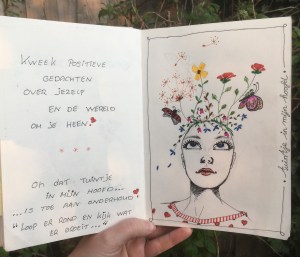 KWEEK POSITIEVE
GEDACHTEN
OVER JEZELF
EN DE WERELD
OM JE HEEN.
OH DAT TUINTJE
IN MIJN HOOFD...
... IS TOE AAN ONDERHOUD
"LOOP ER ROND EN KIJK WAT
ER GROEIT..."
tuintje in mijn hoofd